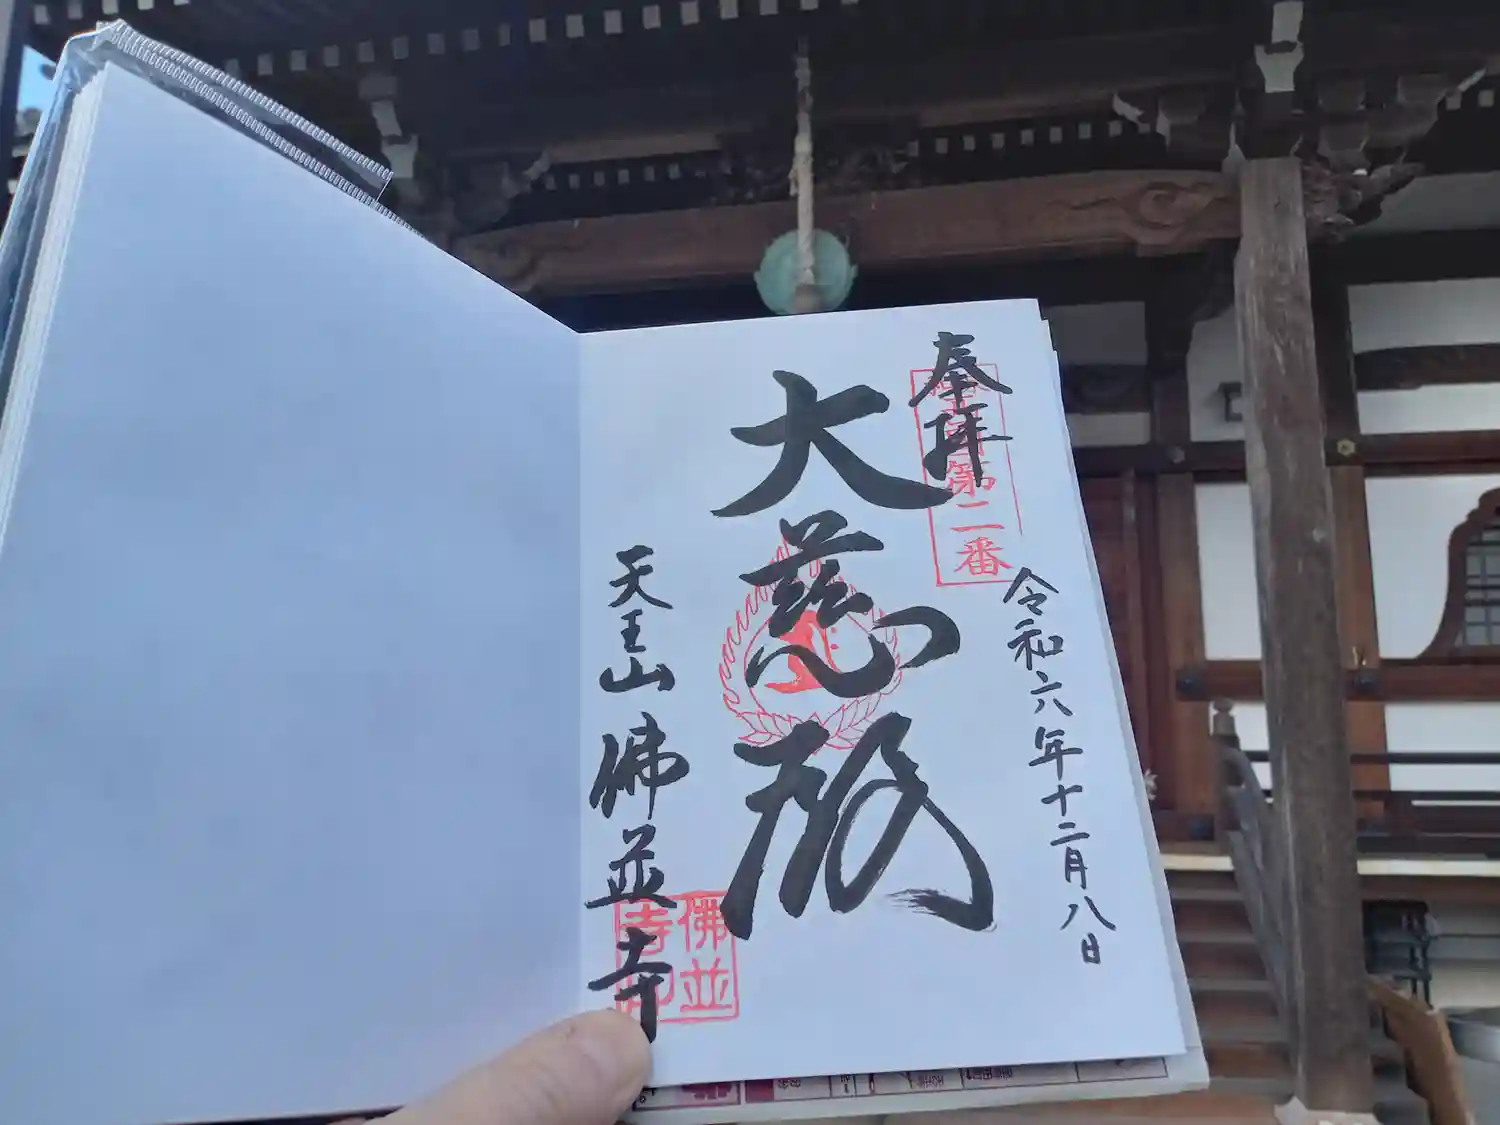 奉拝
第二番
令和六年十二月八日
大慈殿
天王山 佛並寺
佛並
寺